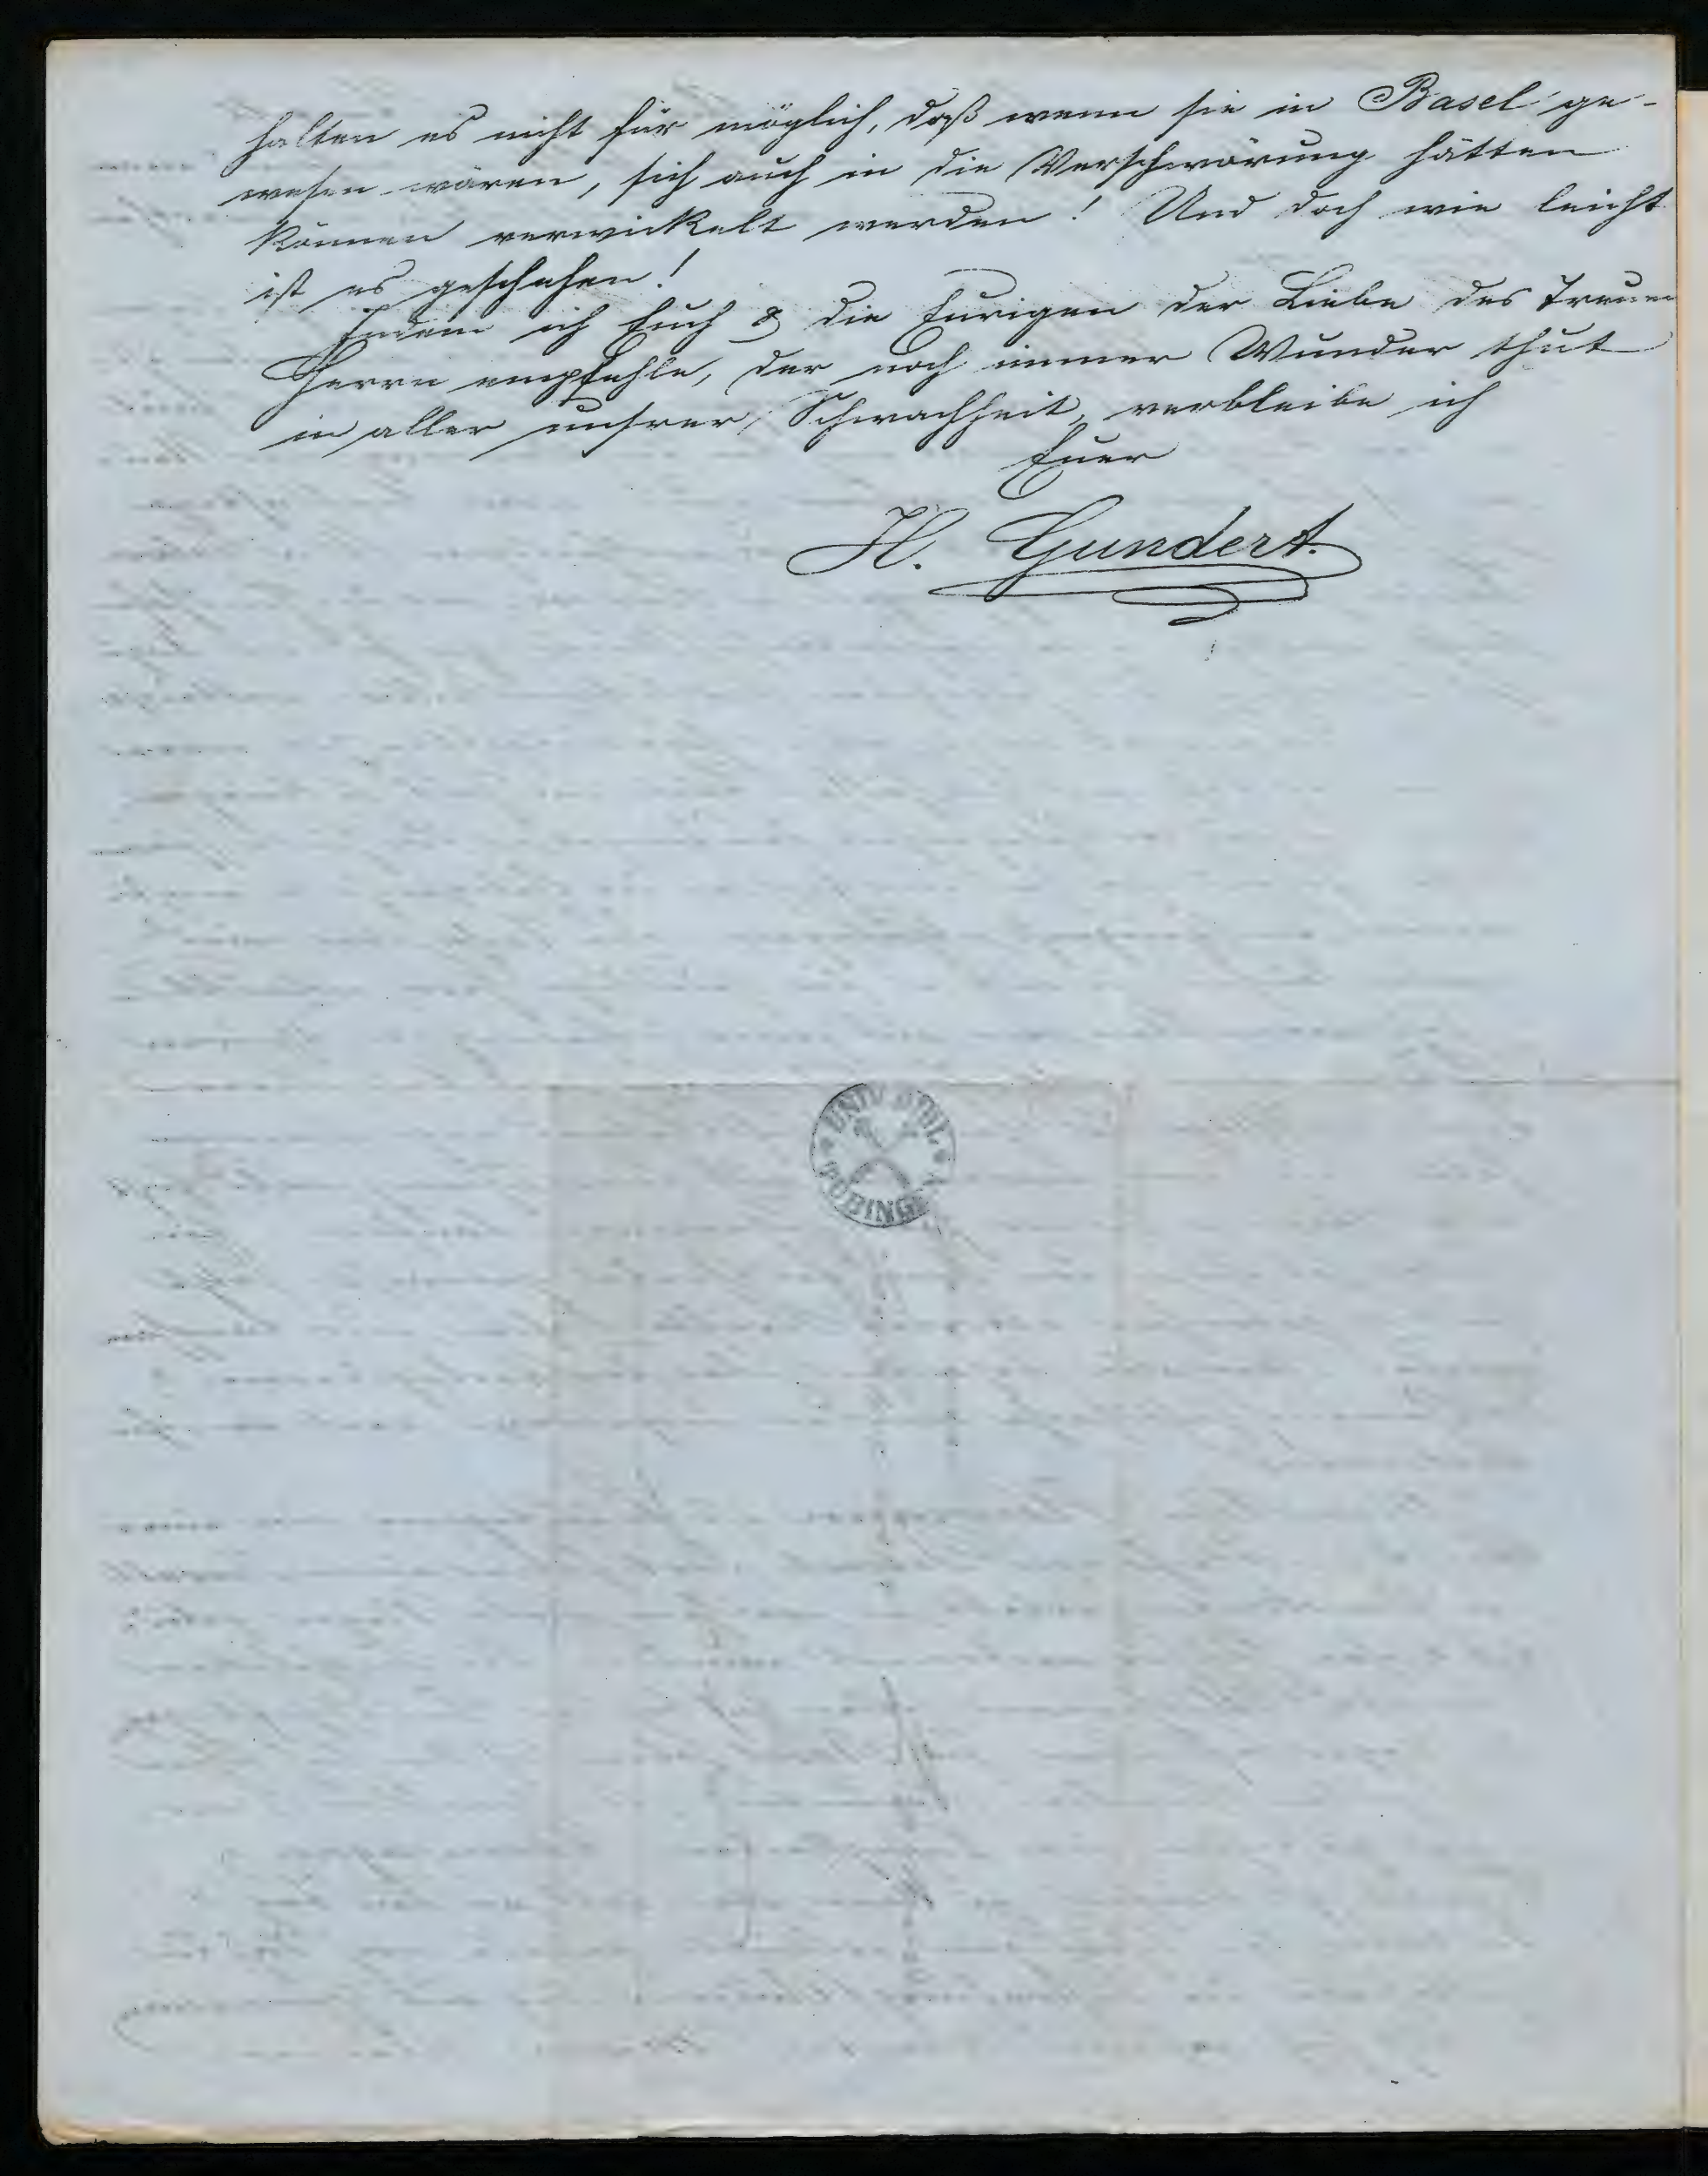 halten es nicht für möglich, daß wenn sie in Basel ge-
wesen wären, sich auch in die Verschwörung hätten
können verwickelt werden! Und doch wie leicht
ist es geschehen!
Indem ich Euch & die Eurigen der Liebe des treuen
Herrn empfehle, der noch immer Wunder thut
in aller unsrer Schwachheit, verbleibe ich
Euer
H. Gundert.
UNIV. BIBL.
TÜBINGEN